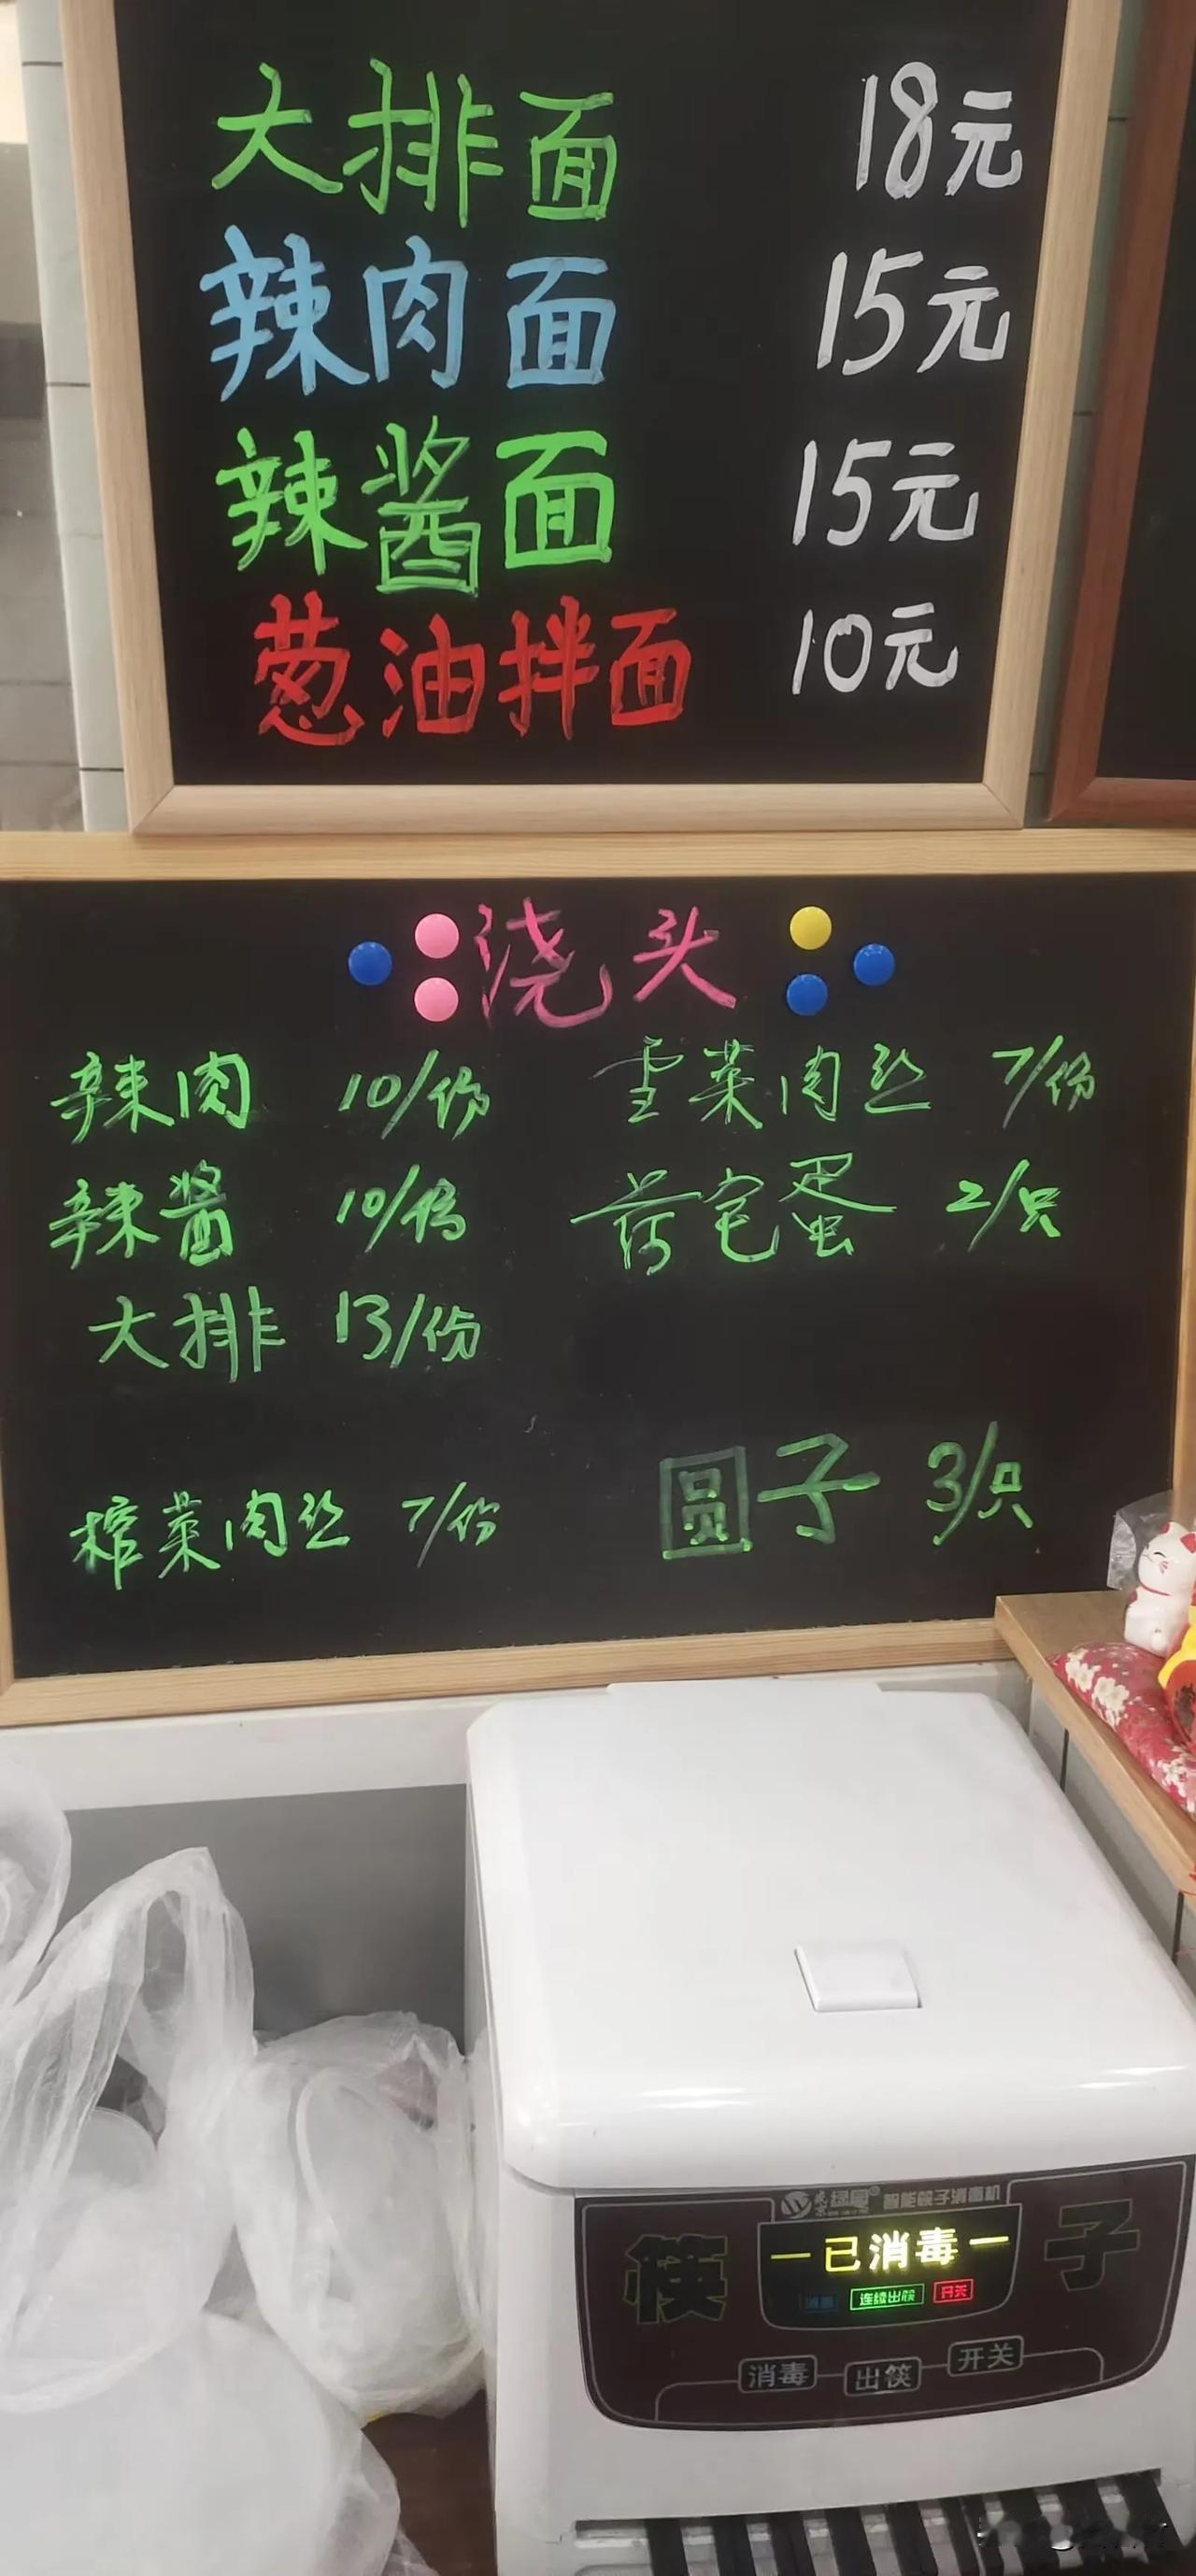 大排面 18元
辣肉面 15元
辣酱面 15元
葱油拌面 10元
浇头
辣肉 10/份 雪菜肉丝 7/份
辣酱 10/份 荷宅蛋 2/只
大排 13/份
榨菜肉丝 7/份 圆子 3/只
智能筷子消毒机
筷 一已消毒一 子
消毒 连续出筷 开关
消毒 出筷 开关